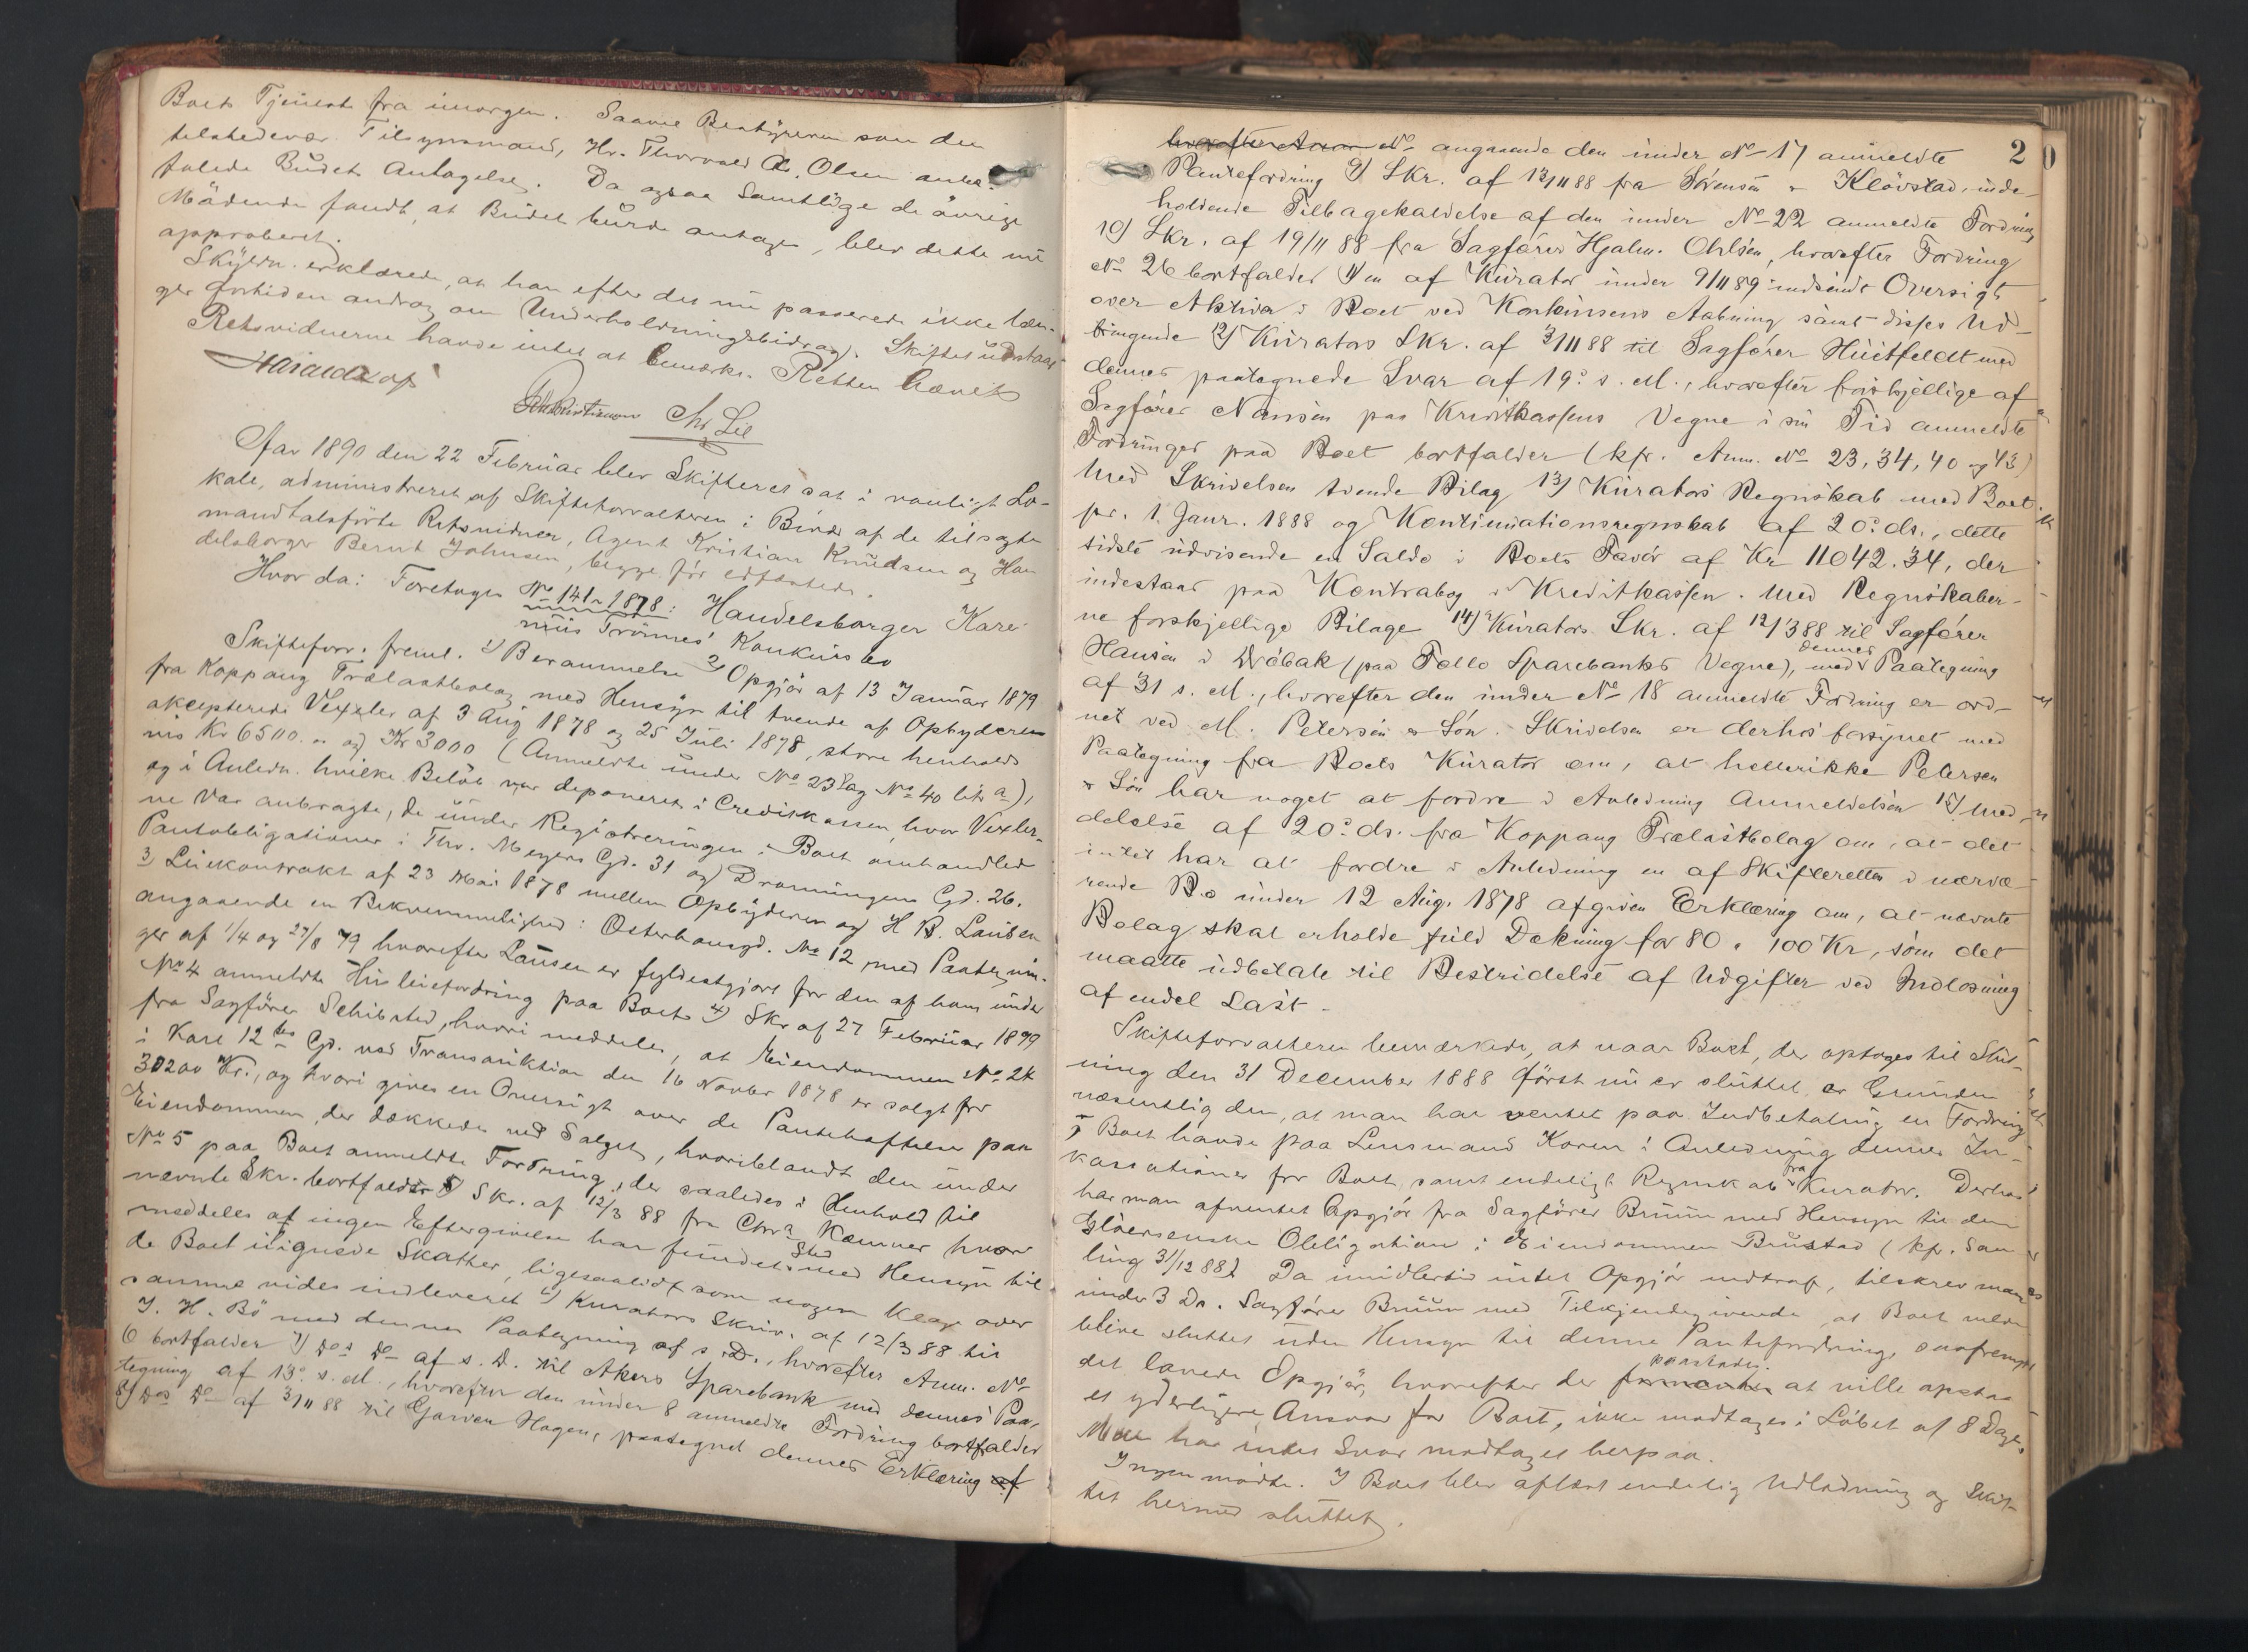 Boets Tjeneste fra imorgen. Saavel Bestyreren som den
tilstedevær. Tilsynsmand, Hr. Thorvald A. Olsen anbe-
falede Budets Antagelse. Da ogsaa samtlige de øvrige
Mødende fandt, at Budet burde antages, blev dette nu
approberet.
Skyldn. erklærede, at han efter det nu passerede ikke læn-
ger fortiden androg om Underholdningsbidrag. Skiftet udstaar
Retsvidnerne havde intet at bemærke. Retten hævet
Chr Lie
Aar 1890 den 22 Februar blev Skifteret sat i vanligt Lo-
kale, administreret af Skifteforvalteren i Bivær af de tilsagte
mandtalsførte Retsvidner, Agent Kristian Knudsen og Han
delsborger Bernt Johnsen, begge før edfæstede.
Hvor da: Foretoges No 141-1878: Handelsborger Kare-
nius Trønnes' Konkursbo
Skifteforv. freml. 1) Berammelse 2) Opgjør af 13 Januar 1879
fra Koppang Trælastbolag med Hensyn til tvende af Opbyderen
akcepterede Vexler af 3 Aug 1878 og 25 Juli 1878, store henholds
vis Kr 6500.- og Kr 3000 (Anmeldte under No 23 og No 40 litr a),
og i Anledn. hvilke Beløb var deponeret i Creditkassen, hvor Vexler-
ne var anbragte, de under Registreringen i Boet omhandlede
Pantobligationer i Thv. Meyers Gd. 31 og Dronningens Gd. 26.
3) Leiekontrakt af 23 Mai 1878 mellem Opbyderen og H B. Lausen
angaaende en Bekvemmelighed i Østerhausgd. No 12 med Paategnin-
ger af 1/4 og 27/8 79 hvorefter Lausen er fyldestgjort for den af ham under
No 4 anmeldte Husleiefordring paa Boet 4) Skr af 27 Februar 1879
fra Sagfører Schibsted, hvori meddeles, at Eiendommen No 24
i Karl 12tes Gd. ved Tvangsauktion den 16 Novbr 1878 er solgt for
30200 Kr., og hvori gives en Oversigt over de Pantehæftelser paa
Eiendommen, der dækkedes ved Salget, hvoriblandt den under
No 5 paa Boet anmeldte Fordring, der saaledes i Henhold til
nævnte Skr. bortfalder 5) Skr. af 12/3 88 fra Chra Kæmner hvor
meddeles at ingen Eftergivelse har fundet Sted med Hensyn til
de Boet ilignede Skatter, ligesaalidt som nogen Klage over
samme vides indleveret 6) Kurators Skriv. af 12/3 88 til
J. H. Bø med dennes Paategning af s. D., hvorefter Anm. No
6 bortfalder 7) Dos Do af s. D. til Akers Sparebank med dennes Paa-
tegning af 13o s. M., hvorefter den under 8 anmeldte Fordring bortfalder
8) Dos Do af 3/11 88 til Garver Hagen, paategnet dennes Erklæring af
2
hvorefter Anm No angaaende den under No 17 anmeldte
Pantefordring 9) Skr. af 13/11 88 fra Sørensen & Kløvstad, inde-
holdende Tilbagekaldelse af den under No 22 anmeldte Fordring
10) Skr. af 19/11 88 fra Sagfører Hjalm. Ohlsen, hvorefter Fordring
No 26 bortfalder 11) en af Kurator under 9/11 89 indsendt Oversigt
over Aktiva i Boet ved Konkursens Aabning samt disses Ud-
bringende 12) Kurators Skr. af 3/11 88 til Sagfører Huitfeldt med
dennes paategnede Svar af 19o s. M., hvorefter forskjellige af
Sagfører Nansen paa Kreditkassens Vegne i sin Tid anmeldte
Fordringer paa Boet bortfalder (kfr. Anm. No 23, 34, 40 og 43)
Med Skrivelsen tvende Bilag 13) Kurators Regnskab med Boet
pr. 1. Janr. 1888 og Kontinuationsregnskab af 20o ds., dette
sidste udvisende en Saldo i Boets Favør af Kr 11042.34, der
indestaar paa Kontrabog i Kreditkassen. Med Regnskaber-
ne forskjellige Bilage 14) Kurators Skr. af 12/3 88 til Sagfører
Hansen i Drøbak (paa Follo Sparebanks Vegne), med dennes Paategning
af 31 s. M., hvorefter den under No 18 anmeldte Fordring er ord-
net ved M. Petersen & Søn. Skrivelsen er derhos forsynet med
Paategning fra Boets Kurator om, at hellerikke Petersen
& Søn har noget at fordre i Anledning Anmeldelsen 15) Med-
delelse af 20o ds. fra Koppang Trælastbolag om, at det
intet har at fordre i Anledning en af Skifteretten i nærvæ-
rende Bo under 12 Aug. 1878 afgiven Erklæring om, at nævnte
Bolag skal erholde fuld Dækning for 80 a 100 Kr, som det
maatte udbetale til Bestridelse af Udgifter ved Indløsning
af endel Last -
Skifteforvalteren bemærkede, at naar Boet, der optoges til Slut-
ning den 31 December 1888 først nu er sluttet, er Grunden
væsentlig den, at man har ventet paa Indbetaling en Fordring
Boet havde paa Lensmand Koren i Anledning dennes In-
kassationer for Boet, samt endeligt Regnskab fra Kurator. Derhos
har man afventet Opgjør fra Sagfører Bruun med Hensyn til den
Gløersenske Obligation i Eiendommen Bustad (kfr. Sam-
ling 31/12 88). Da imidlertid intet Opgjør indtraf, tilskrev man
under 3 Ds. Sagfører Bruun med Tilkjendegivende, at Boet vilde
blive sluttet uden Hensyn til denne Pantefordring, saafremt
det lovede Opgjør, hvorefter der paastodes at ville opstaa
et yderligere Ansvar for Boet, ikke modtages i Løbet af 8 Dage.
Man har intet Svar modtaget herpaa.
Ingen mødte. I Boet blev afläst endelig Udlodning og Skif-
tet hermed sluttet.